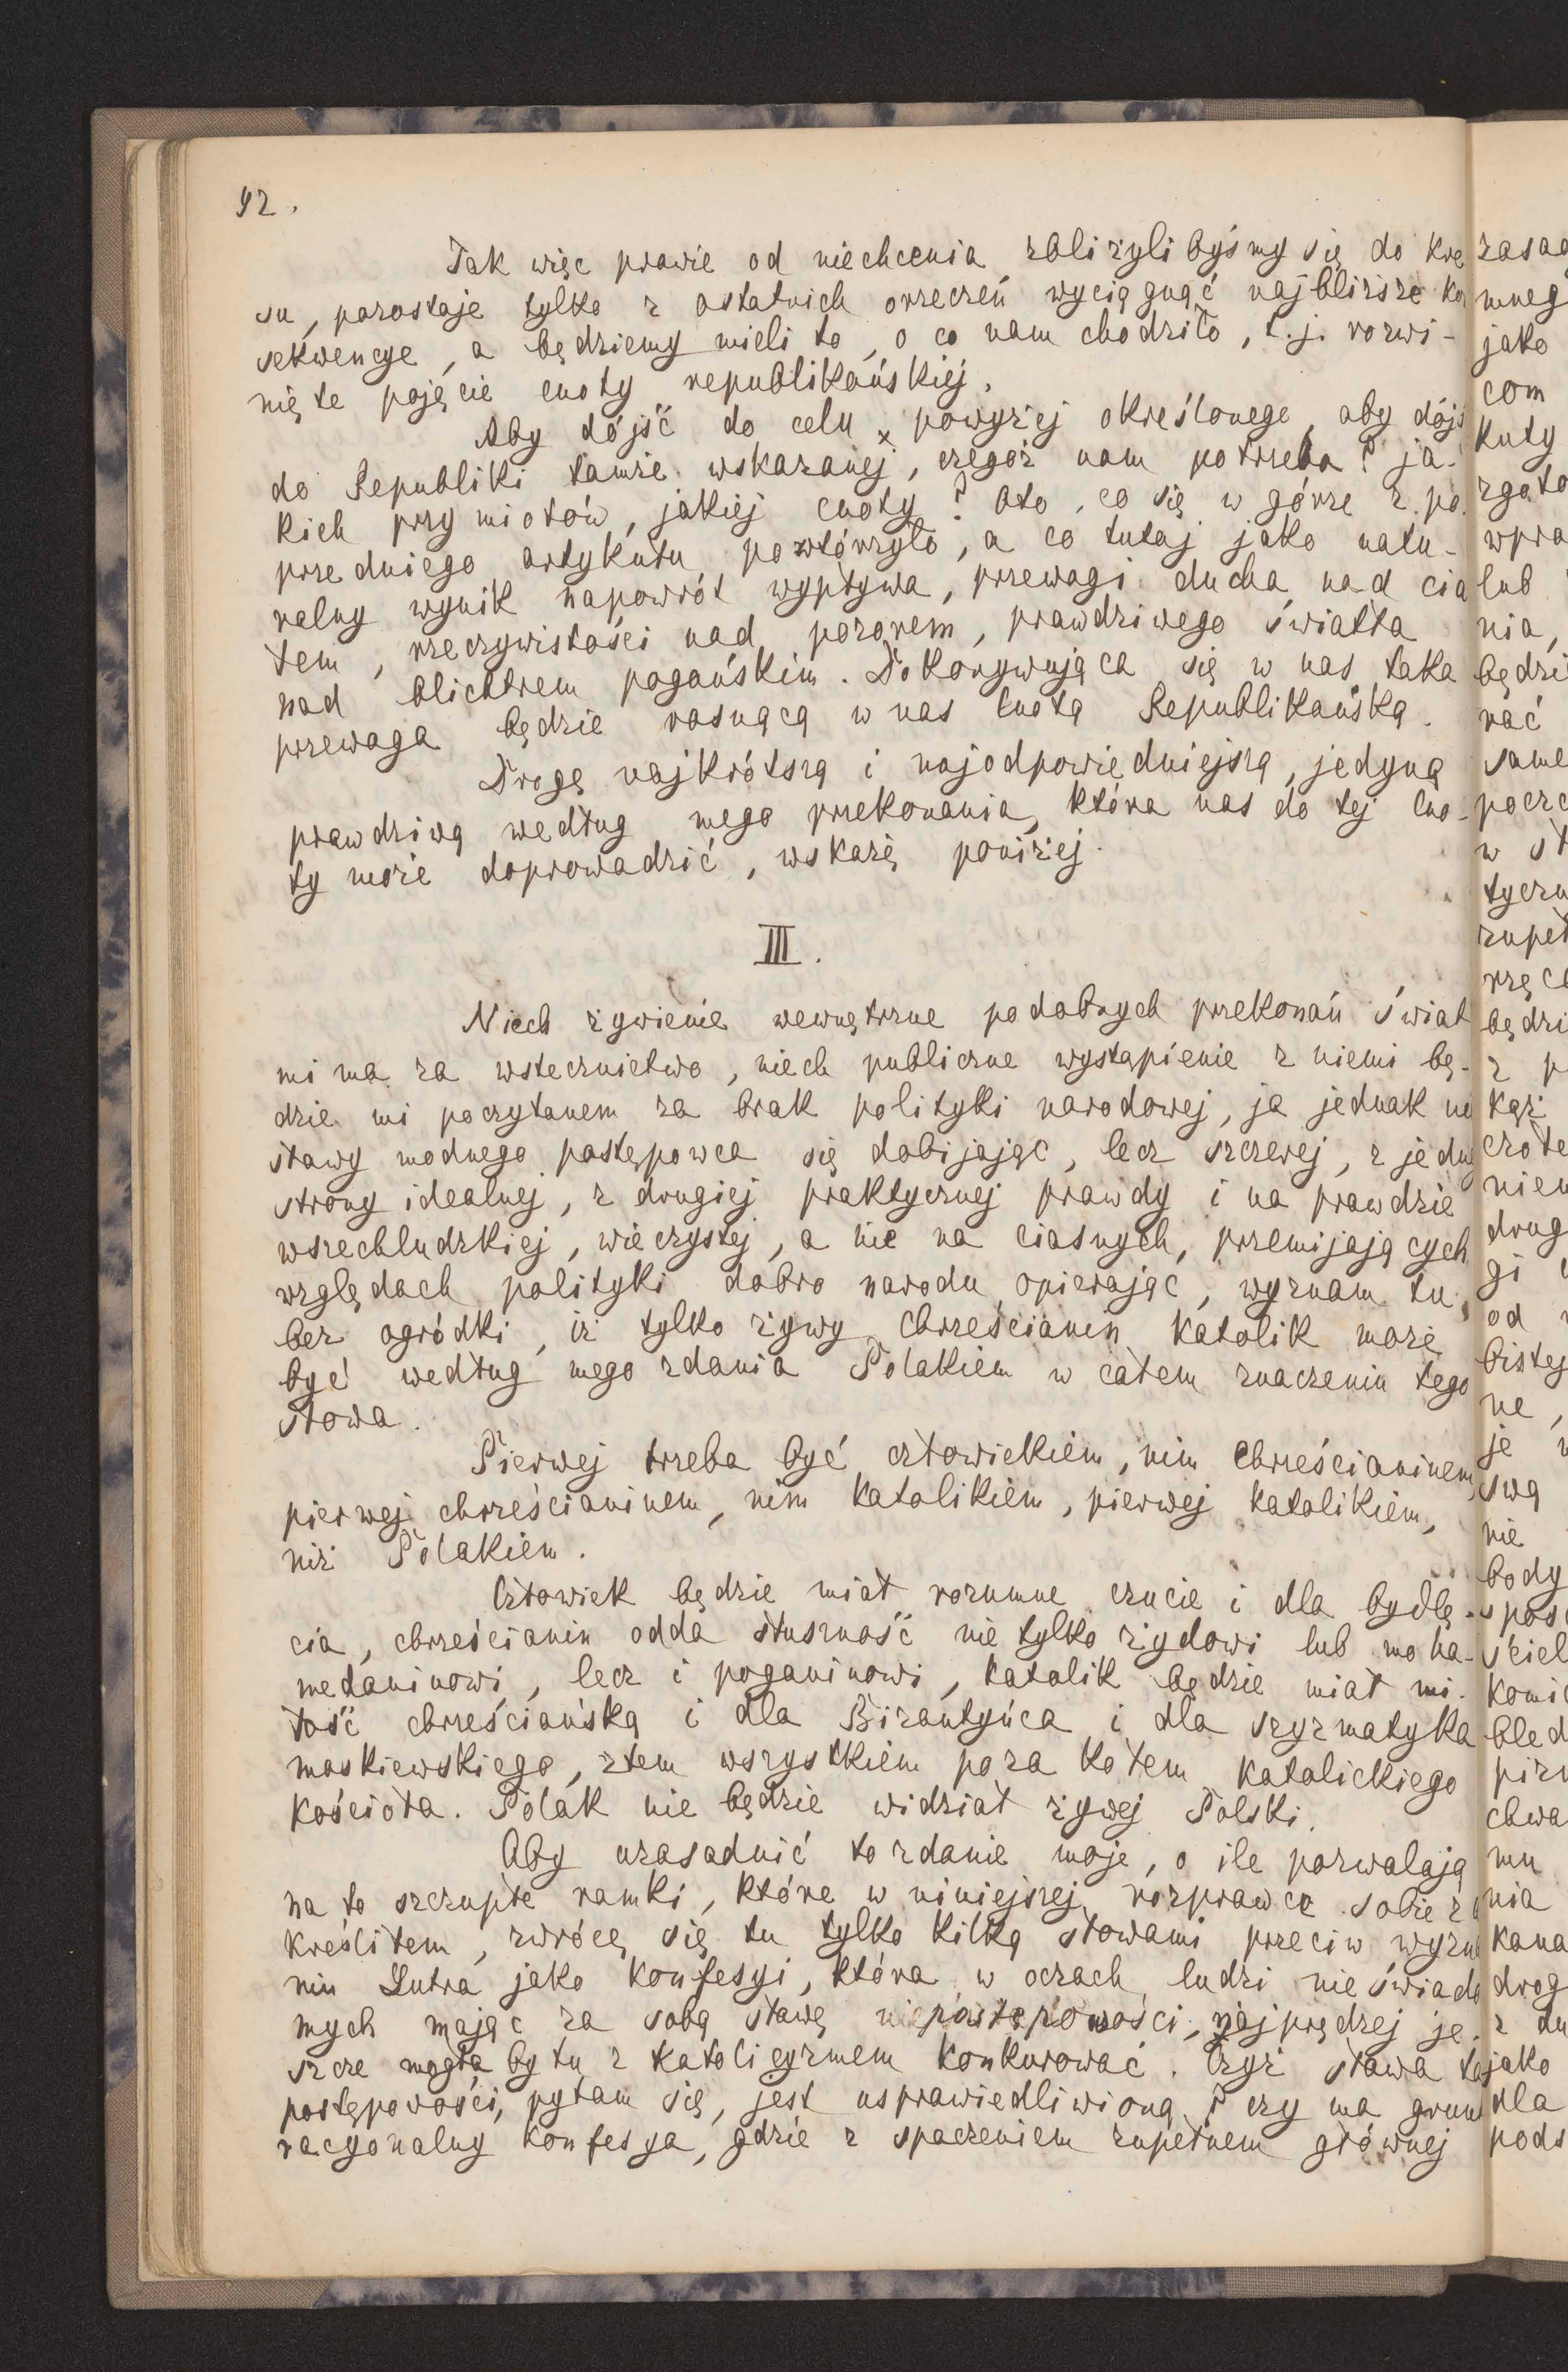 92.
Tak więc prawie od niechcenia zbliżylibyśmy się do kre
su, pozostaje tylko z ostatnich orzeczeń wyciągnąć najbliższe kon
sekwencye, a będziemy mieli to, o co nam chodziło, t.j. rozwi-
nięte pojęcie cnoty republikańskiej.
Aby dójść do celu x powyżej określonego, aby dójś
do Republiki tamże wskazanej, czegóż nam potrzeba? ja-
kich przymiotów, jakiej cnoty? Oto, co się w górze z po-
przedniego artykułu powtórzyło, a co tutaj jako natu-
ralny wynik napowrót wypływa, przewagi ducha nad cia
łem, rzeczywistości nad pozorem, prawdziwego światła
nad blichtrem pogańskim. Dokonywująca się w nas taka
przewaga będzie rosnącą w nas Cnotą Republikańską.
Drogę najkrótszą i najodpowiedniejszą, jedyną
prawdziwą według mego przekonania, która nas do tej cno-
ty może doprowadzić, wskażę poniżej.
III.
Niech żywienie wewnętrzne podobnych przekonań świat
mi ma za wstecznictwo, niech publiczne wystąpienie z niemi bę-
dzie mi poczytanem za brak polityki narodowej, ja jednak nie
sławy modnego postępowca się dobijając, lecz szczerej, z jedn
strony idealnej, z drugiej praktycznej prawdy i na prawdzie
wszechludzkiej, wieczystej, a nie na ciasnych, przemijających
względach polityki dobro narodu opierając, wyznam tu,
bez ogródki, iż tylko żywy chrześcianin katolik może
być według mego zdania Polakiem w całem znaczeniu tego
słowa.
Pierwej trzeba być człowiekiem, nim chrześcianinem,
pierwej chrześcianinem, nim katolikiem, pierwej katolikiem,
niż Polakiem.
Człowiek będzie miał rozumne czucie i dla bydlę-
cia, chrześcianin odda słuszność nie tylko żydowi lub moha-
medaninowi, lecz i poganinowi, katolik będzie miał mi-
łość chrześciańską i dla Bizantyńca i dla szyzmatyka
moskiewskiego, ztem wszystkiem poza kołem katolickiego
kościoła. Polak nie będzie widział żywej Polski.
Aby uzasadnić to zdanie moje, o ile pozwalają
na to szczupłe ramki, które w niniejszej rozprawce sobie z
kreśliłem, zwrócę się tu tylko kilką słowami przeciw wyzn
niu Lutra jako konfesyi, która w oczach ludzi nieświado
mych mając za sobą sławę niepostępowości, najprędzej je-
szcze mogłaby tu z katolicyzmem konkurować. Czyż sława ta
postępowości, pytam się, jest usprawiedliwioną? czy ma grun
racyonalny konfesya, gdzie z spaczeniem zupełnem głównej
zasad
mneg
jako
com
kuty
zgoto
wpra
lub
nia,
będzi
rać
same
pocze
w st
tyczn
zupeł
rzęce
będzi
z p
każ
czołe
niem
drug
gi
od
bistej
ne,
je
swą
nie
body
spos
ściel
komi
błęd
pizn
chwa
mu
nia
kana
drog
z du
jako
dla
pods